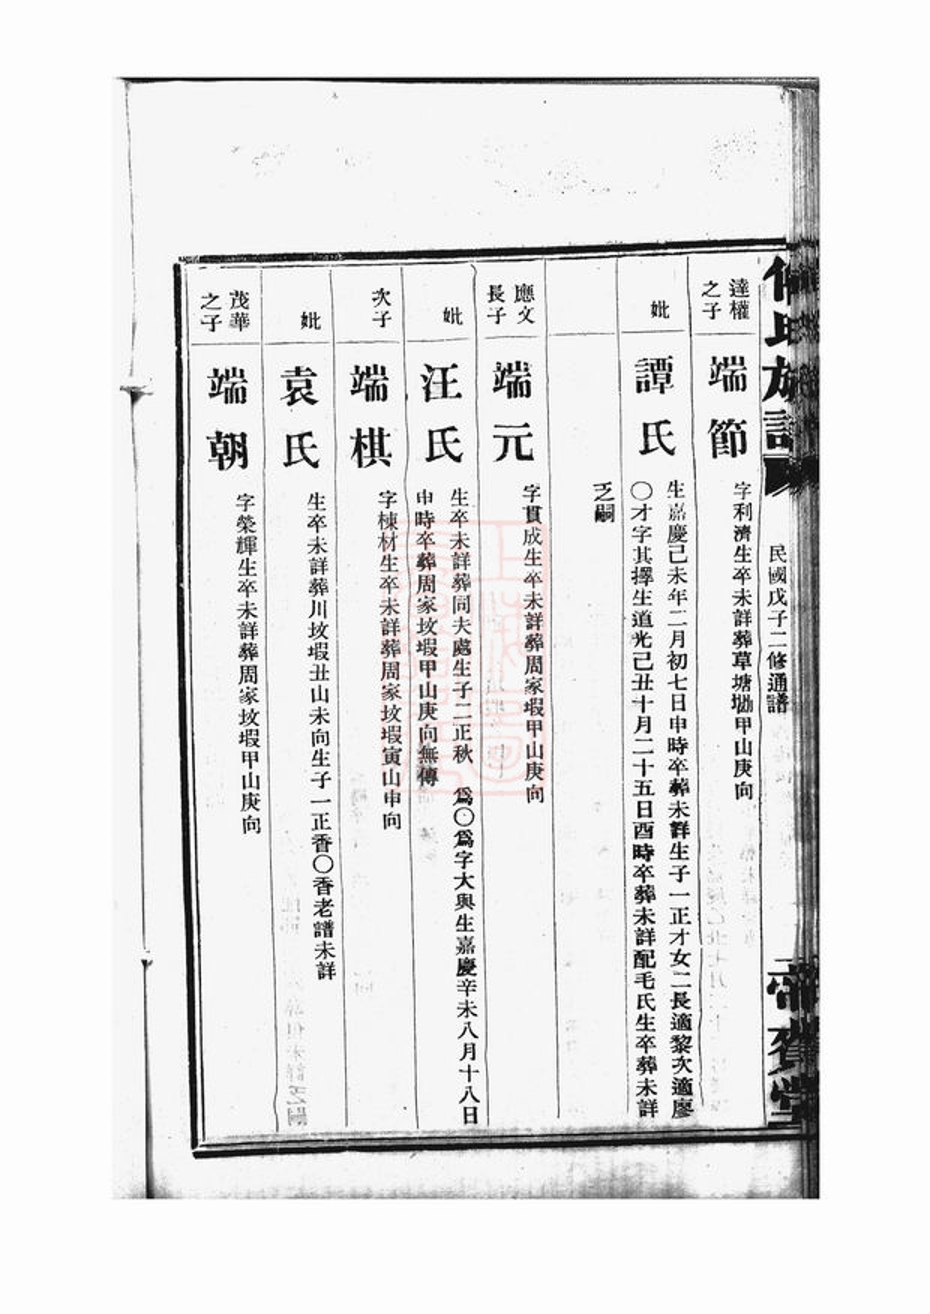 氏族譜
民國戊子二修通譜
帝賚堂
達權
之子
端節
字利濟生卒未詳葬草塘坳甲山庚向
妣
譚氏
生嘉慶己未年二月初七日申時卒葬未詳生子一正才女二長適黎次適廖
〇才字其擇生道光己丑十月二十五日酉時卒葬未詳配毛氏生卒葬未詳
乏嗣
應文
長子
端元
字貫成生卒未詳葬周家塅甲山庚向
妣
汪氏
生卒未詳葬同夫處生子二正秋 爲〇爲字大與生嘉慶辛未八月十八日
申時卒葬周家坟塅甲山庚向無傳
次子
端棋
字棟材生卒未詳葬周家坟塅寅山申向
妣
袁氏
生卒未詳葬川坟塅丑山未向生子一正香〇香老譜未詳
茂華
之子
端朝
字榮輝生卒未詳葬周家坟塅甲山庚向